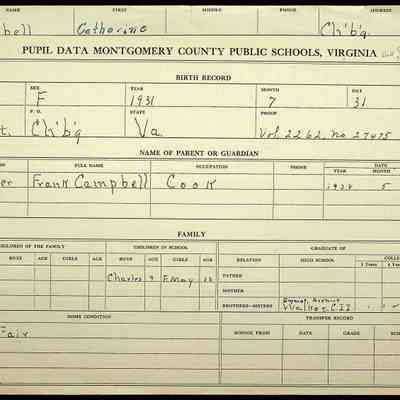 NAME FIRST MIDDLE PHONE ADDRESS
bell Catharine Ch'b'g.
PUPIL DATA MONTGOMERY COUNTY PUBLIC SCHOOLS, VIRGINIA
BIRTH RECORD
SEX YEAR MONTH DAY
F 1931 7 31
P. O. STATE PROOF
t. Ch'b'g Va. Vol. 2262, No 27475
NAME OF PARENT OR GUARDIAN
FULL NAME OCCUPATION PHONE DATE
YEAR MONTH
er Frank Campbell Cook 1939 5
FAMILY
CHILDREN OF THE FAMILY CHILDREN IN SCHOOL GRADUATE OF
BOYS AGE GIRLS AGE BOYS AGE GIRLS AGE RELATION HIGH SCHOOL COLL
2 Years 4 Year
FATHER
Charles 9 F. May 12
MOTHER
BROTHERS—SISTERS
HOME CONDITION TRANSFER RECORD
Fair SCHOOL FROM DATE GRADE SCH